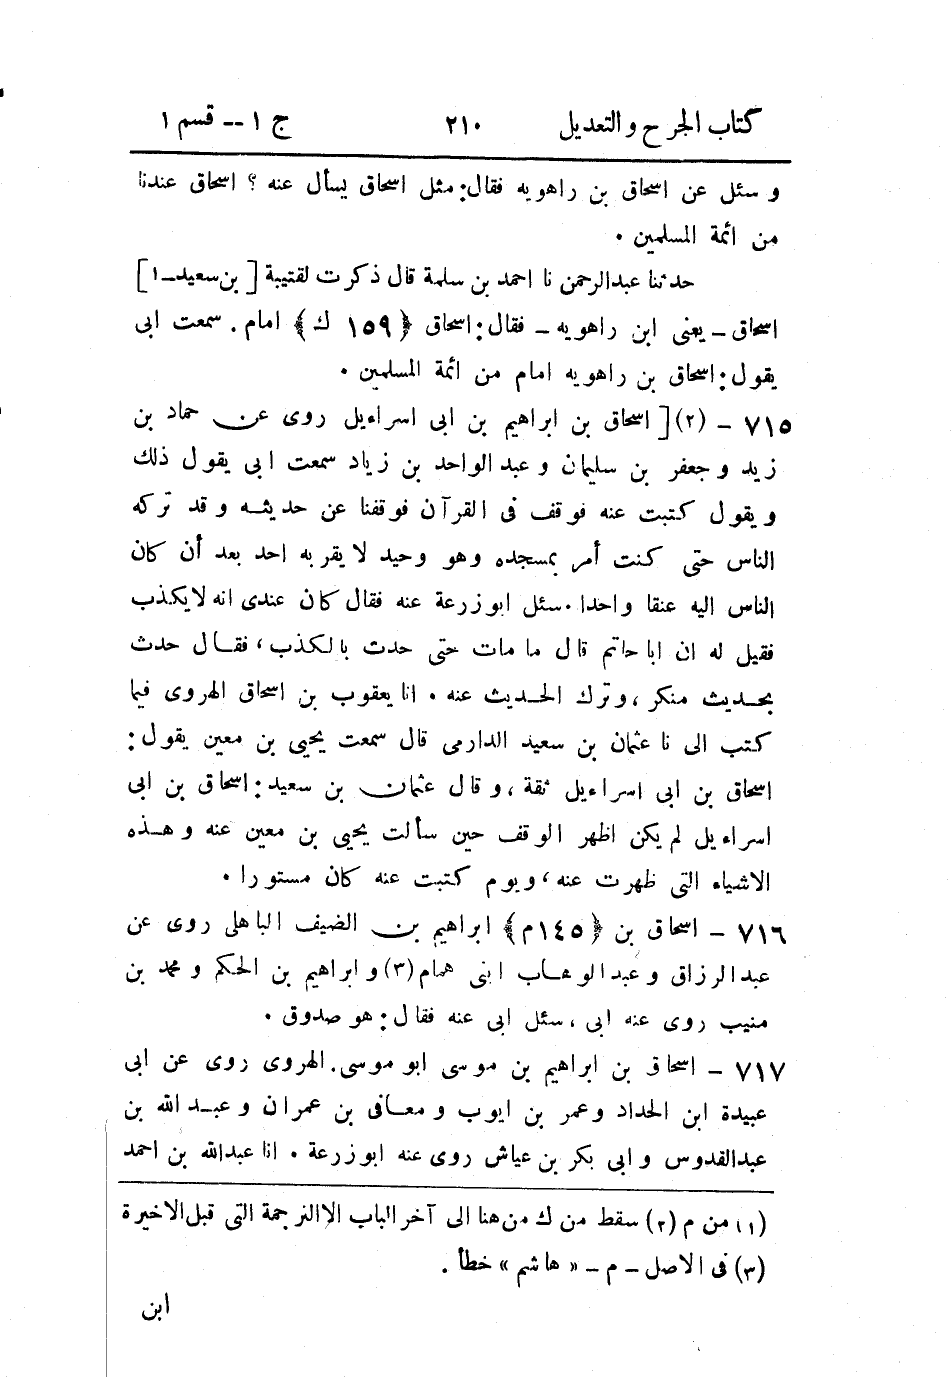 كتاب الجرح والتعديل ٢١٠ ج ١ -- قسم ١
و سئل عن اسحاق بن راهويه فقال: مثل اسحاق يسأل عنه ؟ اسحاق عندنا
من ائمة المسلمين .
حدثنا عبدالرحمن نا احمد بن سلمة قال ذكرت لقتيبة [ بن سعيد-١ ]
اسحاق - يعنى ابن راهويه - فقال: اسحاق ﴿ ١٥٩ ك ﴾ امام . سمعت ابى
يقول: اسحاق بن راهويه امام من ائمة المسلمين .
٧١٥ - (٢) [ اسحاق بن ابراهيم بن ابى اسراءيل روى عن حماد بن
زيد و جعفر بن سليمان و عبد الواحد بن زياد سمعت ابى يقول ذلك
و يقول كتبت عنه فوقف فى القرآن فوقفنا عن حديثه و قد تركه
الناس حتى كنت أمر بمسجده وهو وحيد لا يقربه احد بعد أن كان
الناس اليه عنقا واحدا . سئل ابو زرعة عنه فقال كان عندى انه لا يكذب
فقيل له ان ابا حاتم قال ما مات حتى حدث بالكذب ، فقال حدث
بحديث منكر ، وترك الحديث عنه . انا يعقوب بن اسحاق الهروى فيما
كتب الى نا عثمان بن سعيد الدارمى قال سمعت يحيى بن معين يقول:
اسحاق بن ابى اسراءيل ثقة ، و قال عثمان بن سعيد: اسحاق بن ابى
اسراءيل لم يكن اظهر الوقف حين سألت يحيى بن معين عنه و هذه
الاشياء التى ظهرت عنه ، ويوم كتبت عنه كان مستورا .
٧١٦ - اسحاق بن ﴿ ١٤٥ م ﴾ ابراهيم بن الضيف الباهلى روى عن
عبد الرزاق و عبد الوهاب ابنى همام (٣) و ابراهيم بن الحكم و محمد بن
منيب روى عنه ابى ، سئل ابى عنه فقال: هو صدوق .
٧١٧ - اسحاق بن ابراهيم بن موسى ابو موسى . الهروى روى عن ابى
عبيدة ابن الحداد وعمر بن ايوب و معافى بن عمران و عبد الله بن
عبدالقدوس و ابى بكر بن عياش روى عنه ابو زرعة . انا عبدالله بن احمد
(١) من م (٢) سقط من ك من هنا الى آخر الباب الا الترجمة التى قبل الاخيرة
(٣) فى الاصل - م - « هاشم » خطأ .
ابن